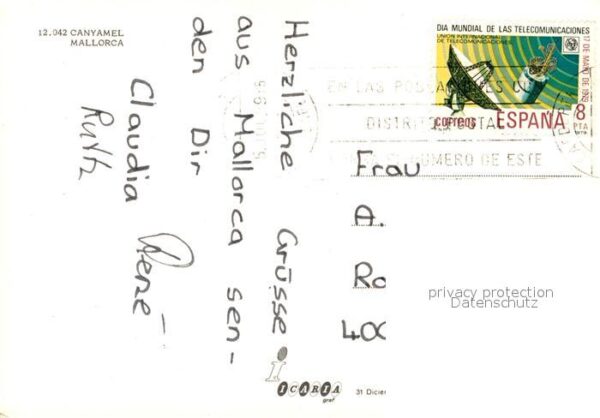 12.042 CANYAMEL
MALLORCA
Herzliche Grüsse
aus Mallorca sen-
den Dir
Claudia René
Ruth
DIA MUNDIAL DE LAS TELECOMUNICACIONES
UNION INTERNACIONAL
DE TELECOMUNICACIONES
17 DE MAYO DE 1979
correos ESPAÑA 8
PTA
EN LAS POBLACIONES CON
DISTRITO POSTAL
NUMERO DE ESTE
Frau
A.
Ro
400
privacy protection
Datenschutz
ICARIA
graf
31 Dicie